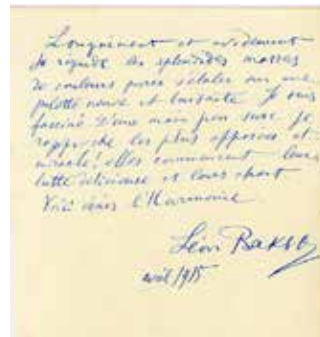 Longuement et avidement
Je regarde les splendides masses
de couleurs pures s'étaler sur une
palette neuve et luisante. Je suis
fasciné. D'une main peu sure je
rapproche les plus opposées et
miracle! elles commencent leur
lutte délicieuse et leurs chant
Voici venir l'Harmonie
Léon Bakst
avril/1915